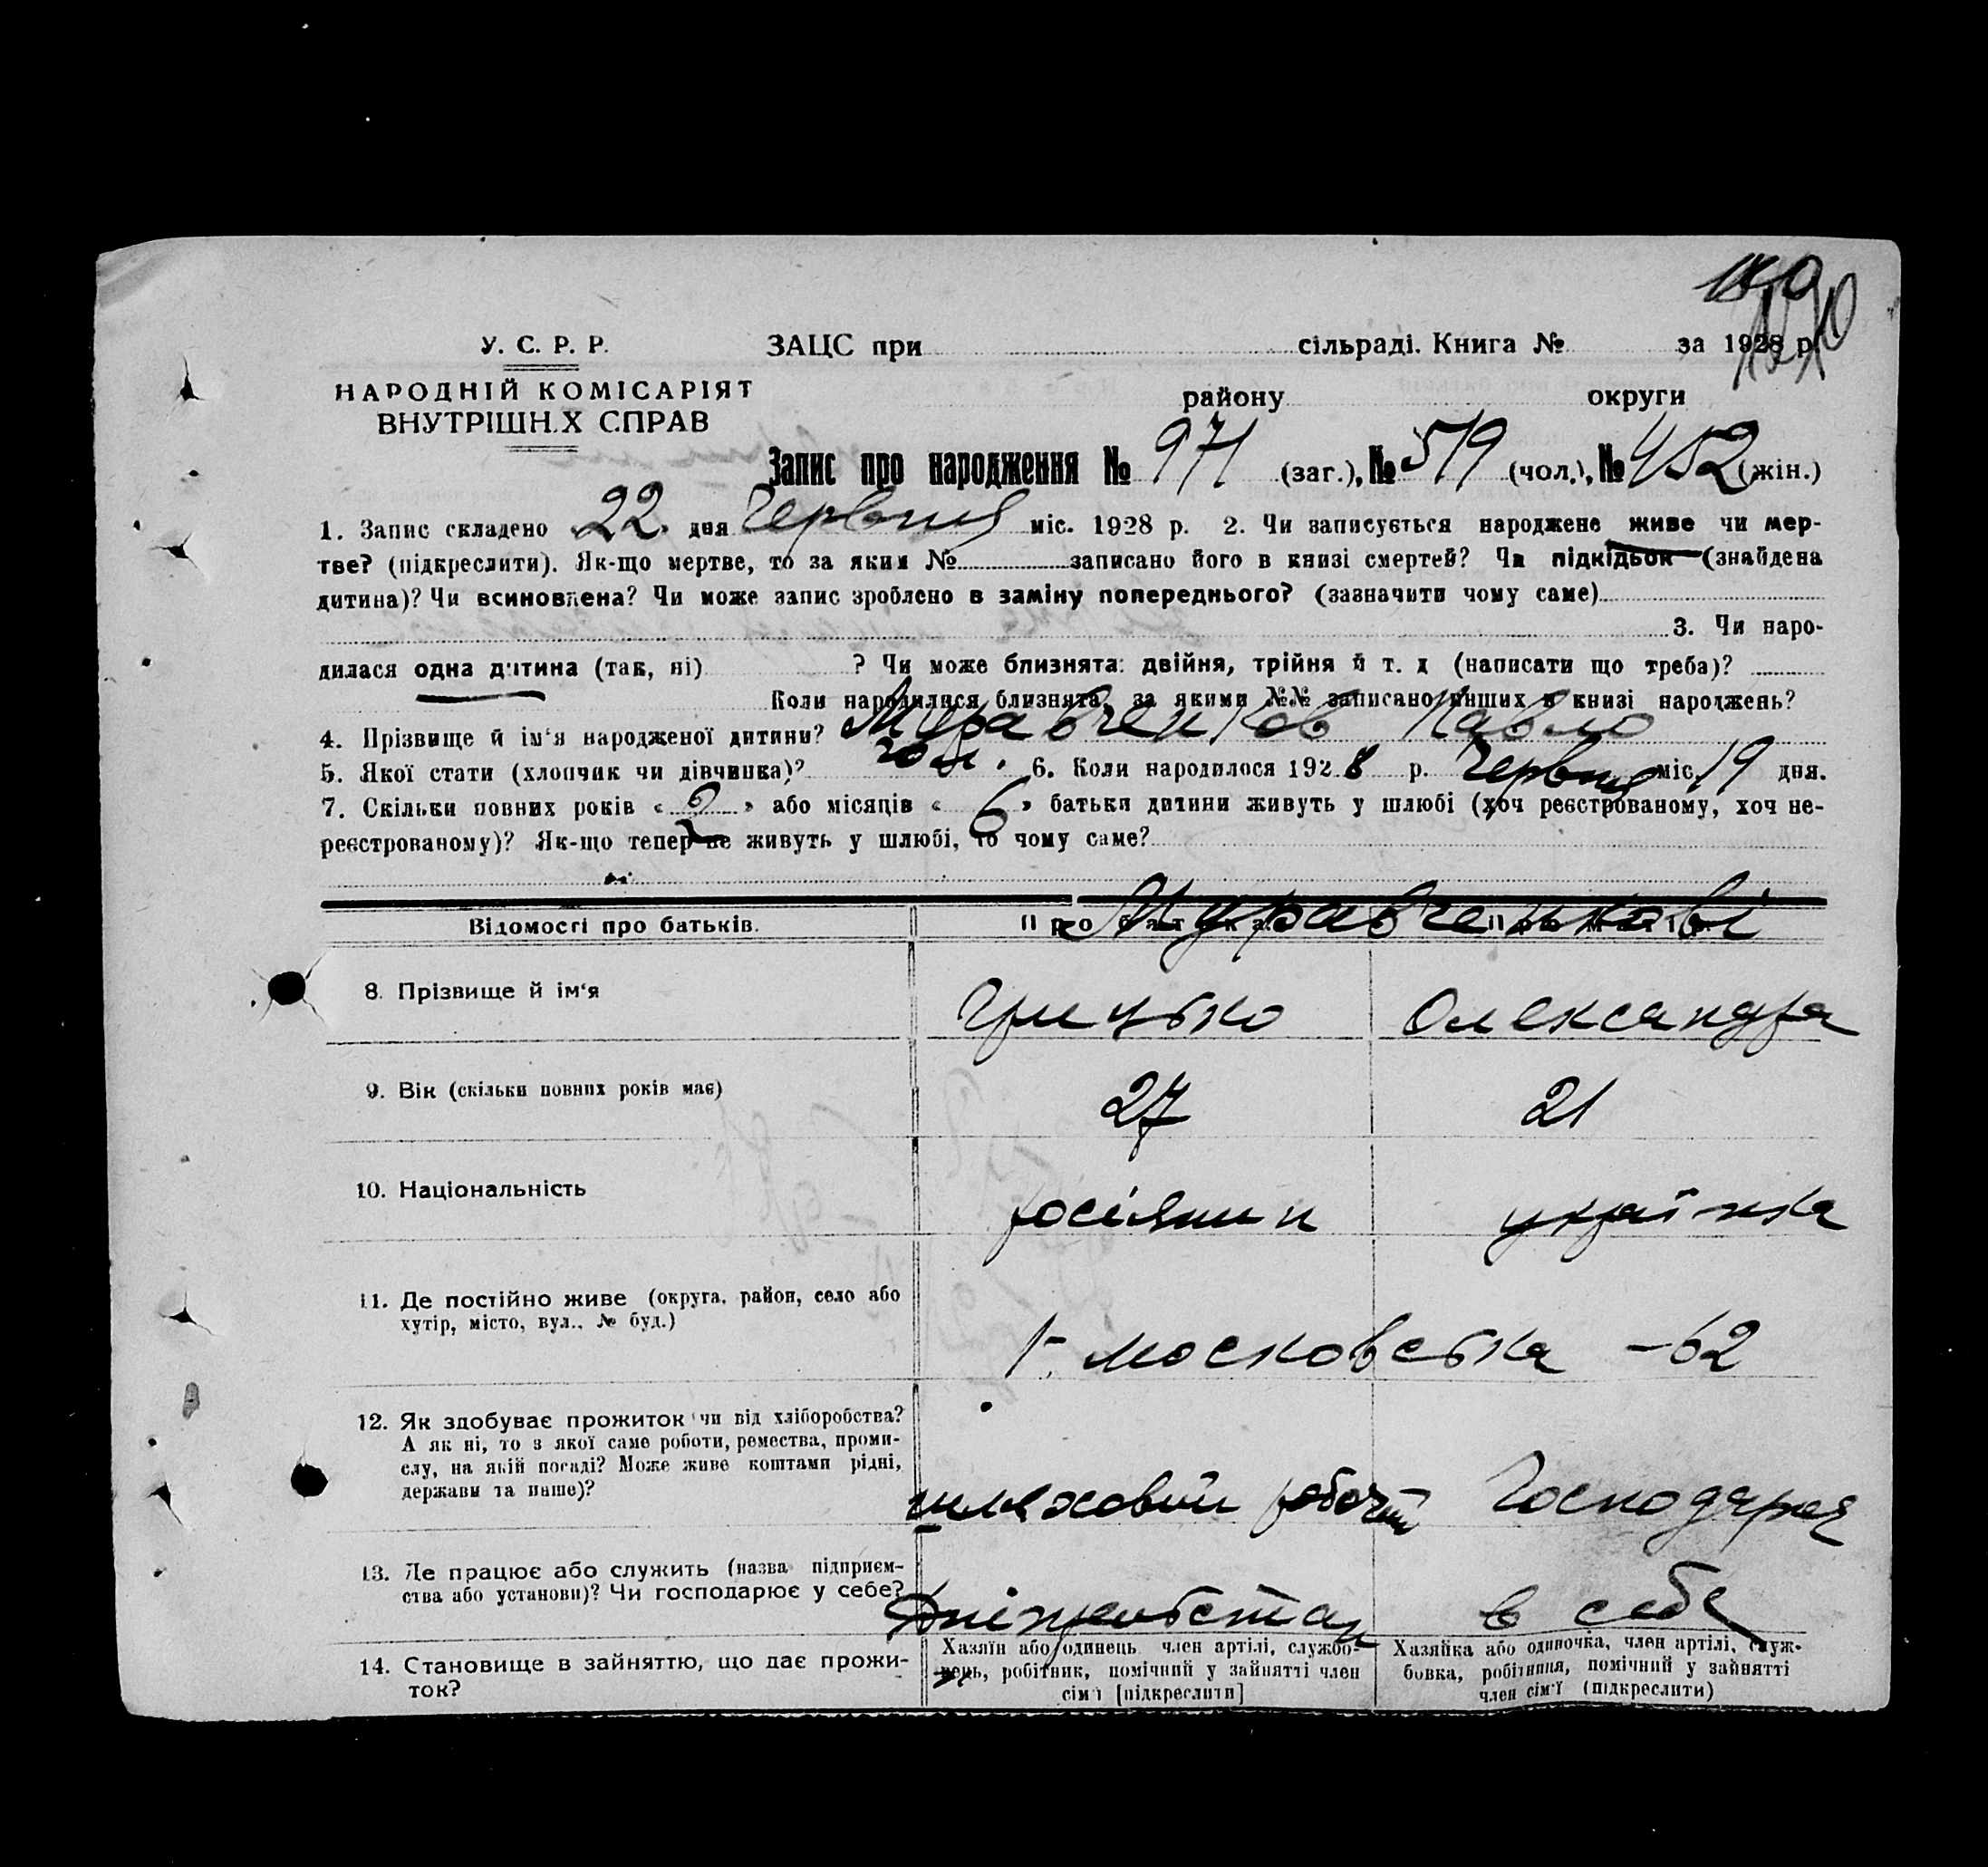 У. С. Р. Р.
ЗАЦС при сільраді. Книга № за 1928 р.
НАРОДНІЙ КОМІСАРІЯТ
ВНУТРІШН.Х СПРАВ
району округи
Запис про народження № 971 (заг.), № 519 (чол.), № 452 (жін.)
1. Запис складено 22 дня Червня міс. 1928 р. 2. Чи записується народжене живе чи мер-
тве? (підкреслити). Як-що мертве, то за яким № записано його в книзі смертей? Чи підкідьок (знайдена
дитина)? Чи всиновлена? Чи може запис зроблено в заміну попереднього? (зазначити чому саме)
3. Чи наро-
дилася одна дитина (так, ні) ? Чи може близнята: двійня, трійня й т. д (написати що треба)?
Коли народилися близнята, за якими №№ записано инших в книзі народжень?
4. Прізвище й ім'я народженої дитини? Муравченков Павло
5. Якої стати (хлопчик чи дівчинка)? чол. 6. Коли народилося 1928 р. Червня міс. 19 дня.
7. Скільки повних років « 2 » або місяців « 6 » батьки дитини живуть у шлюбі (хоч реєстрованому, хоч не-
реєстрованому)? Як-що тепер не живуть у шлюбі, то чому саме?
Муравченкові
Відомості про батьків. Про батька Про матір
8. Прізвище й ім'я Грицько Олександра
9. Вік (скільки повних років має) 27 21
10. Національність росіянин українка
11. Де постійно живе (округа, район, село або
хутір, місто, вул., № буд.) 1. московська – 62
12. Як здобуває прожиток чи від хліборобства?
А як ні, то з якої саме роботи, ремества, проми-
слу, на якій посаді? Може живе коштами рідні,
держави та инше)? шляховий робочий Господарка
13. Де працює або служить (назва підприєм-
ства або установи)? Чи господарює у себе? в себе
14. Становище в зайняттю, що дає прожи-
ток?
Хазяїн або одинець член артілі, службо-
вець, робітник, помічний у зайнятті член
сім'ї [підкреслити]
Хазяйка або одиночка, член артілі, служ-
бовка, робітниця, помічний у зайнятті
член сім'ї (підкреслити)